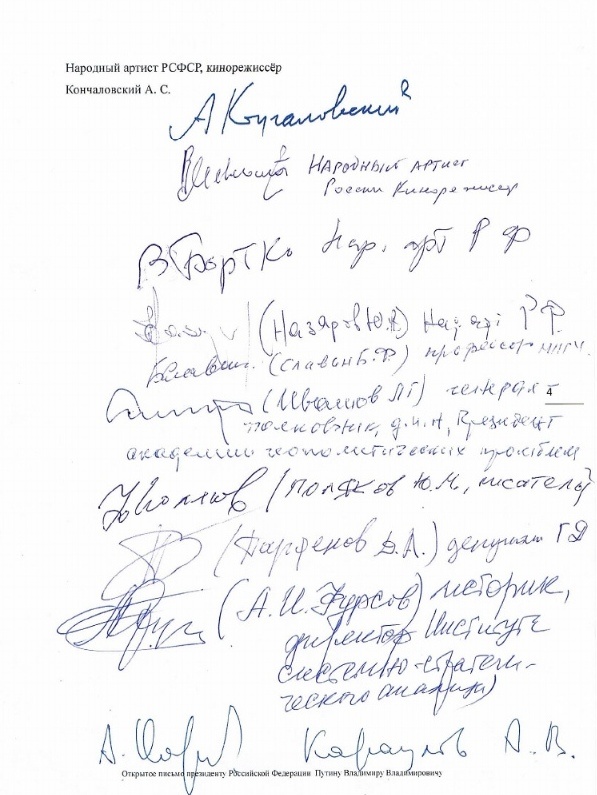 Народный артист РСФСР, кинорежиссёр
Кончаловский А. С.
А Кончаловский
НАРОДНЫЙ АРТИСТ
России Кинорежиссер
В Бортко Нар. арт РФ
(Назаров Ю.В) Нар арт РФ
(Славин Б.Ф.) профессор МПГУ.
(Ивашов ЛГ) генерал-
4
полковник, д.и.н, Президент
академии геополитических проблем
(Поляков Ю.М, писатель)
(Парфенов Д.А.) депутат ГД
(А.И. Фурсов) историк,
директор Института
системно-стратеги-
ческого анализа)
Караулов А. В.
Открытое письмо президенту Российской Федерации Путину Владимиру Владимировичу